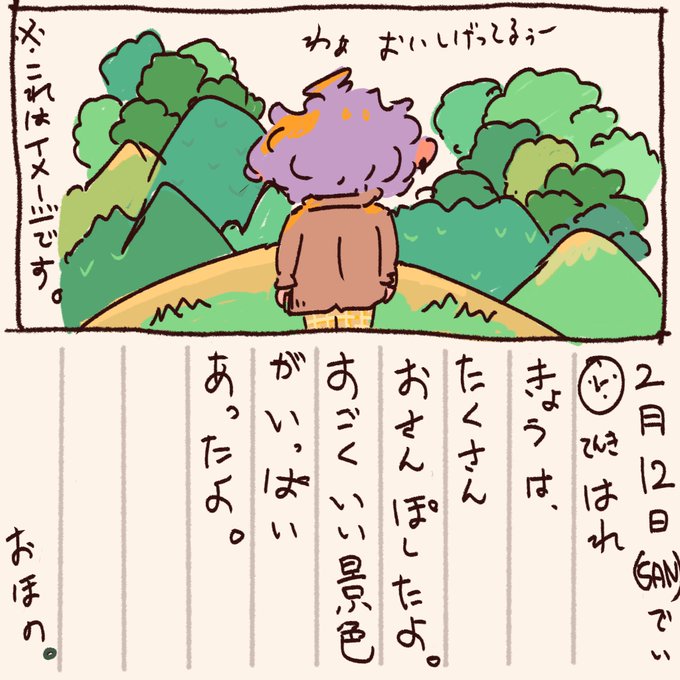 わぁ おいしげってるぅー
※.これはイメージです。
2月12日(SAN)でぃ
てんき はれ
きょうは、
たくさん
おさんぽしたよ。
すごくいい景色
がいっぱい
あったよ。
おほの。